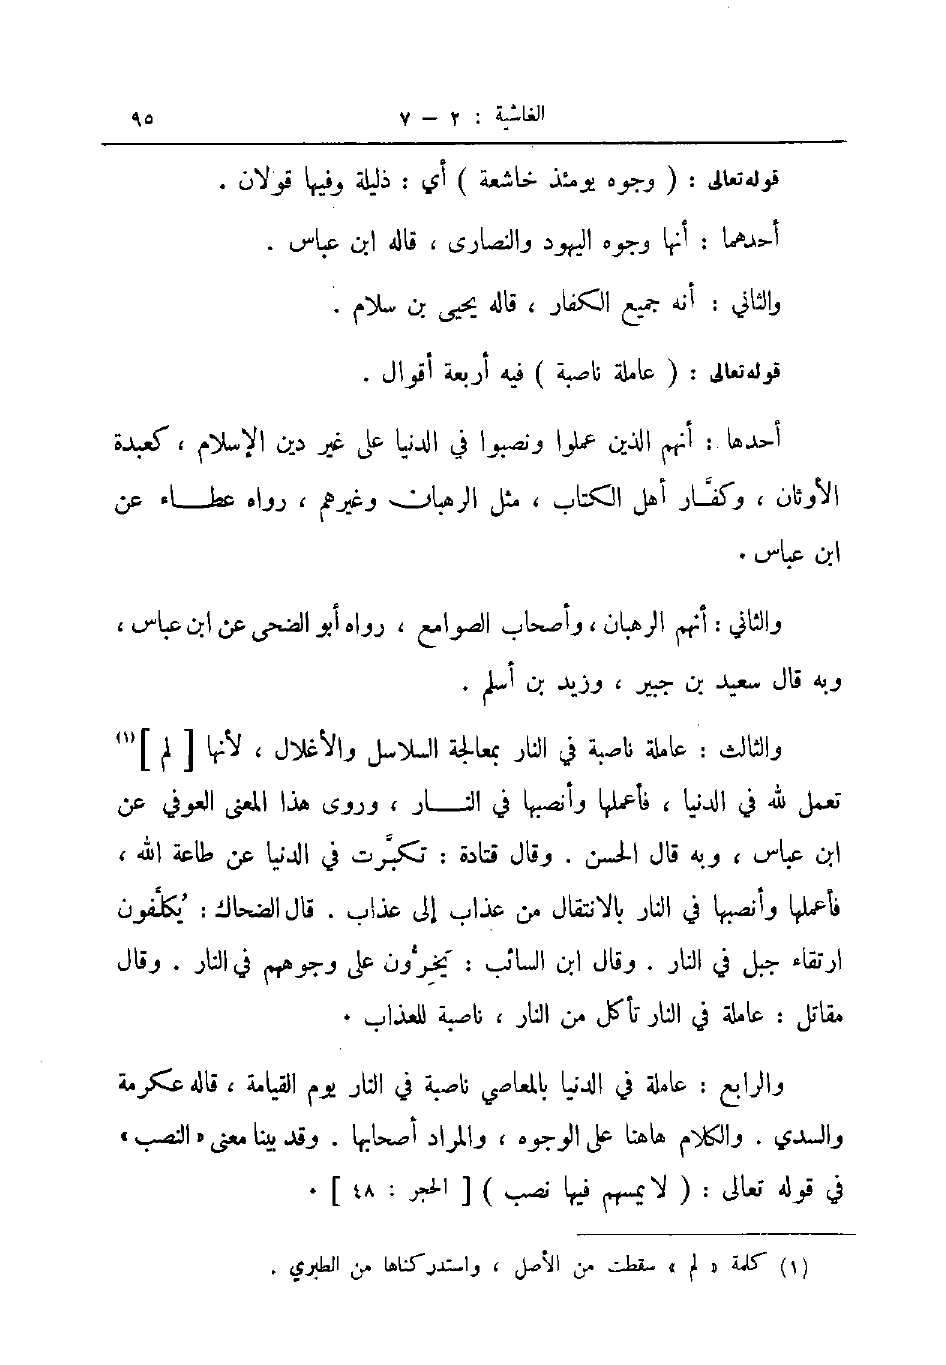 الغاشية : ٢ - ٧ ٩٥
قوله تعالى : ( وجوه يومئذ خاشعة ) أي : ذليلة وفيها قولان .
أحدهما : أنها وجوه اليهود والنصارى ، قاله ابن عباس .
والثاني : أنه جميع الكفار ، قاله يحيى بن سلام .
قوله تعالى : ( عاملة ناصبة ) فيه أربعة أقوال .
أحدها : أنهم الذين عملوا ونصبوا في الدنيا على غير دين الإسلام ، كعبدة
الأوثان ، وكفَّار أهل الكتاب ، مثل الرهبان وغيرهم ، رواه عطاء عن
ابن عباس .
والثاني : أنهم الرهبان ، وأصحاب الصوامع ، رواه أبو الضحى عن ابن عباس ،
وبه قال سعيد بن جبير ، وزيد بن أسلم .
والثالث : عاملة ناصبة في النار بمعالجة السلاسل والأغلال ، لأنها [ لم ] (١)
تعمل لله في الدنيا ، فأعملها وأنصبها في النار ، وروى هذا المعنى العوفي عن
ابن عباس ، وبه قال الحسن . وقال قتادة : تكبَّرت في الدنيا عن طاعة الله ،
فأعملها وأنصبها في النار بالانتقال من عذاب إلى عذاب . قال الضحاك : يُكلَّفون
ارتقاء جبل في النار . وقال ابن السائب : يَخِرُّون على وجوههم في النار . وقال
مقاتل : عاملة في النار تأكل من النار ، ناصبة للعذاب .
والرابع : عاملة في الدنيا بالمعاصي ناصبة في النار يوم القيامة ، قاله عكرمة
والسدي . والكلام هاهنا على الوجوه ، والمراد أصحابها . وقد بينا معنى « النصب »
في قوله تعالى : ( لا يمسهم فيها نصب ) [ الحجر : ٤٨ ] .
(١) كلمة « لم » سقطت من الأصل ، واستدركناها من الطبري .